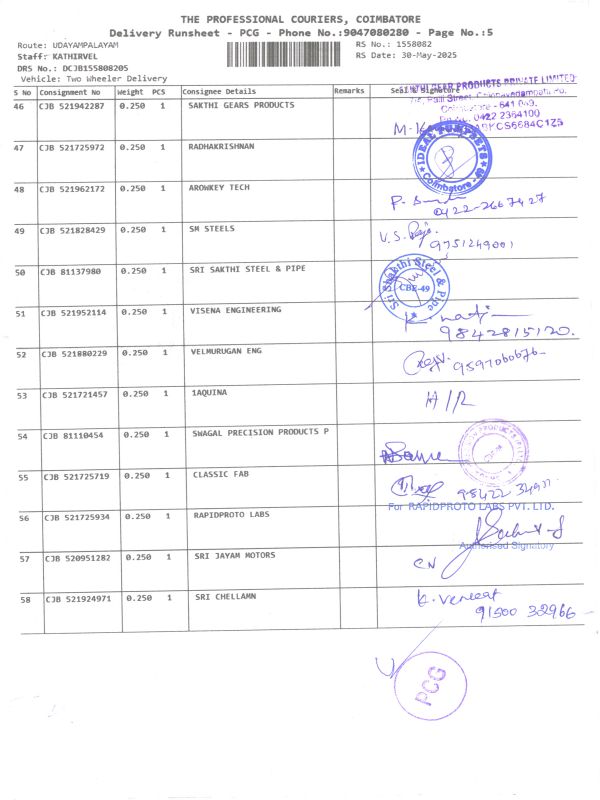 THE PROFESSIONAL COURIERS, COIMBATORE
Delivery Runsheet - PCG - Phone No.:9047080280 - Page No.:5
Route: UDAYAMPALAYAM RS No.: 1558082
Staff: KATHIRVEL RS Date: 30-May-2025
DRS No.: DCJB155808205
Vehicle: Two Wheeler Delivery
S No Consignment No Weight PCS Consignee Details Remarks Seal & Signature
46 CJB 521942287 0.250 1 SAKTHI GEARS PRODUCTS
GEAR PRODUCTS PRIVATE LIMITED
Coimbatore - 641 049.
0422 2364100
47 CJB 521725972 0.250 1 RADHAKRISHNAN
IDEAL PUMPSETS
Coimbatore - 49
48 CJB 521962172 0.250 1 AROWKEY TECH
0422-2667427
49 CJB 521828429 0.250 1 SM STEELS
V.S.
9751249001
50 CJB 81137980 0.250 1 SRI SAKTHI STEEL & PIPE
Sri Shakthi Steel & Pipe
CBE-49
51 CJB 521952114 0.250 1 VISENA ENGINEERING
9842815120.
52 CJB 521880229 0.250 1 VELMURUGAN ENG
9597060676
53 CJB 521721457 0.250 1 1AQUINA
H/R
54 CJB 81110454 0.250 1 SWAGAL PRECISION PRODUCTS P
55 CJB 521725719 0.250 1 CLASSIC FAB
98422
56 CJB 521725934 0.250 1 RAPIDPROTO LABS
For RAPIDPROTO LABS PVT. LTD.
Authorised Signatory
57 CJB 520951282 0.250 1 SRI JAYAM MOTORS
CN
58 CJB 521924971 0.250 1 SRI CHELLAMN
K. Venkat
91500 32966
PCG